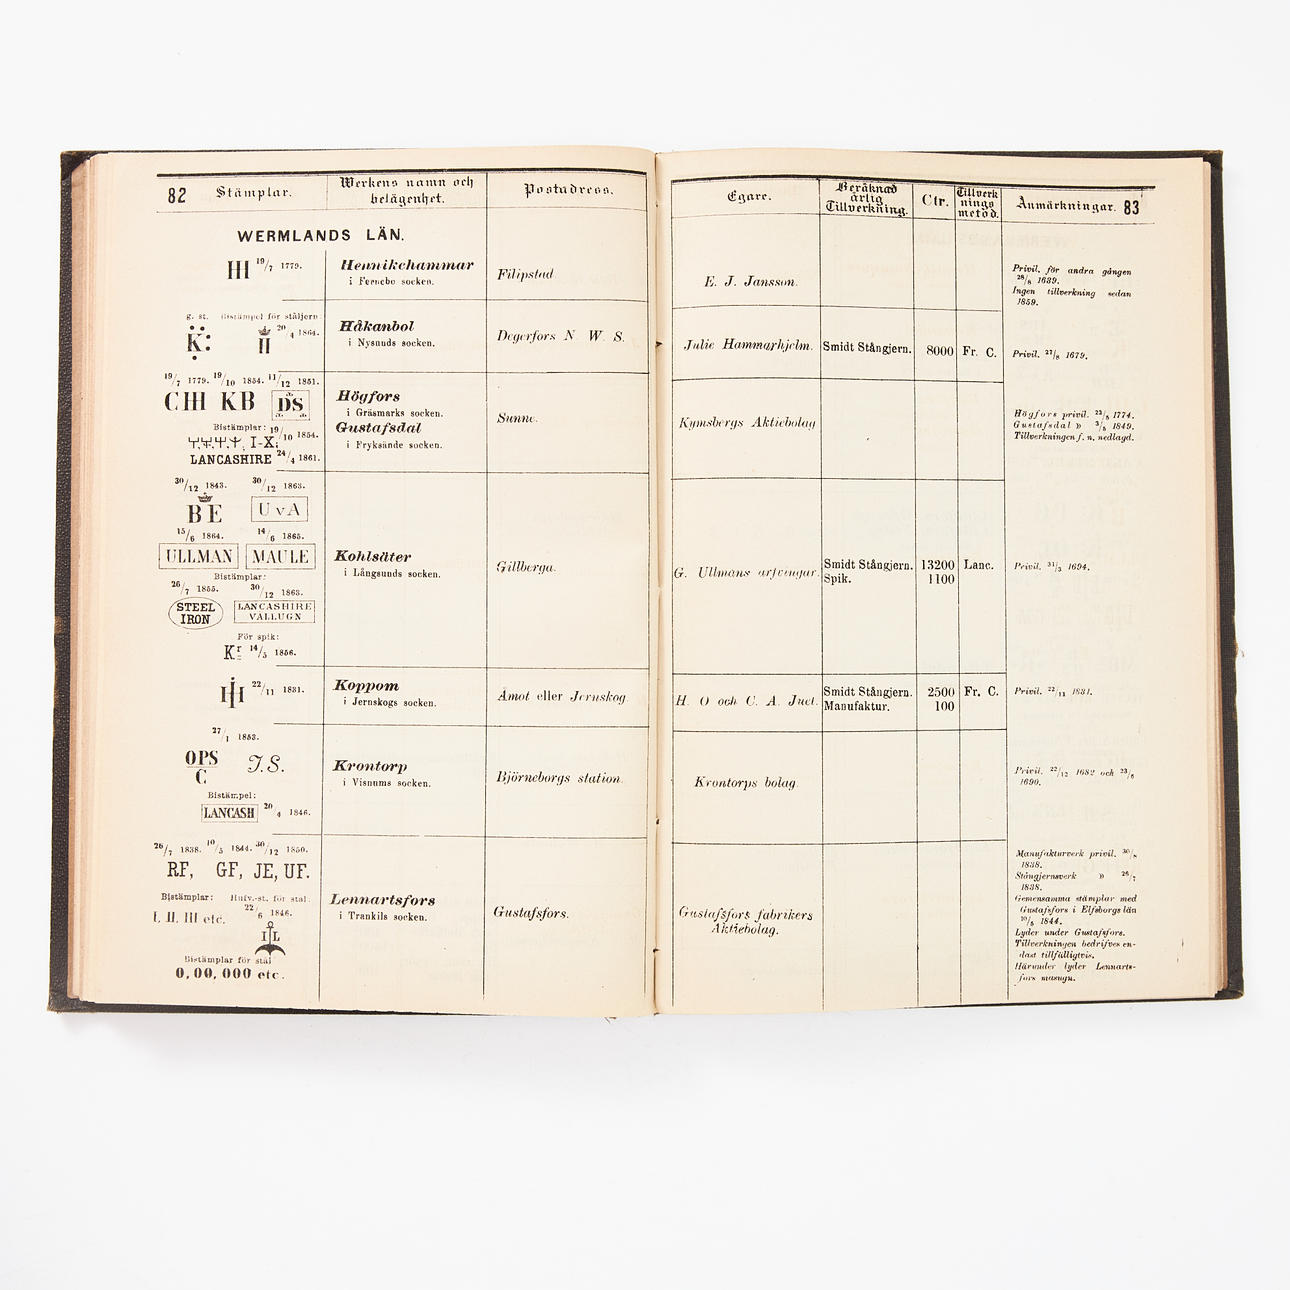 82 Stämplar.
Werkens namn och
belägenhet.
Postadress.
WERMLANDS LÄN.
19/7 1779.
Hennikehammar
i Fernebo socken.
Filipstad.
g. st. Bistämpel för ståljern
K: 20/4 1864.
Håkanbol
i Nysunds socken.
Degerfors N. W. S.
19/7 1779. 19/10 1854. 11/12 1851.
KB DS
Bistämplar: 19/10 1854.
I-X;
LANCASHIRE 24/4 1861.
Högfors
i Gräsmarks socken.
Gustafsdal
i Fryksände socken.
Sunne.
30/12 1843. 30/12 1863.
BE UvA
15/6 1864. 14/6 1865.
ULLMAN MAULE
Bistämplar:
26/7 1855. 30/12 1863.
STEEL
IRON
LANCASHIRE
VALLUGN
För spik:
Kr 14/5 1856.
Kohlsäter
i Långsunds socken.
Gillberga.
22/11 1831.
Koppom
i Jernskogs socken.
Åmot eller Jernskog.
27/1 1853.
OPS
C
J.S.
Bistämpel:
LANCASH 20/4 1846.
Krontorp
i Visnums socken.
Björneborgs station.
26/7 1838. 10/5 1844. 30/12 1850.
RF, GF, JE, UF.
Bistämplar: Hufv.-st. för stål:
I, II, III etc. 22/6 1846.
IL
Bistämplar för stål
0, 00, 000 etc.
Lennartsfors
i Trankils socken.
Gustafsfors.
Egare.
Beräknad
årlig
Tillverkning.
Ctr.
Tillverk
nings
metod.
Anmärkningar. 83
E. J. Jansson.
Privil. för andra gången
28/8 1689.
Ingen tillverkning sedan
1859.
Julie Hammarhjelm.
Smidt Stångjern.
8000
Fr. C.
Privil. 21/8 1679.
Kymsbergs Aktiebolag
Högfors privil. 23/8 1774.
Gustafsdal » 3/8 1849.
Tillverkningen f. n. nedlagd.
G. Ullmans arfvingar.
Smidt Stångjern. 13200 Lanc.
Spik. 1100
Privil. 31/3 1694.
H. O och C. A. Juel.
Smidt Stångjern. 2500 Fr. C.
Manufaktur. 100
Privil. 22/11 1831.
Krontorps bolag.
Privil. 22/12 1682 och 23/8
1690.
Gustafsfors fabrikers
Aktiebolag.
Manufakturverk privil. 30/8
1838.
Stångjernsverk » 26/7
1838.
Gemensamma stämplar med
Gustafsfors i Elfsborgs län
10/5 1844.
Lyder under Gustafsfors.
Tillverkningen bedrifves en-
dast tillfälligtvis.
Härunder lyder Lennarts-
fors masugn.